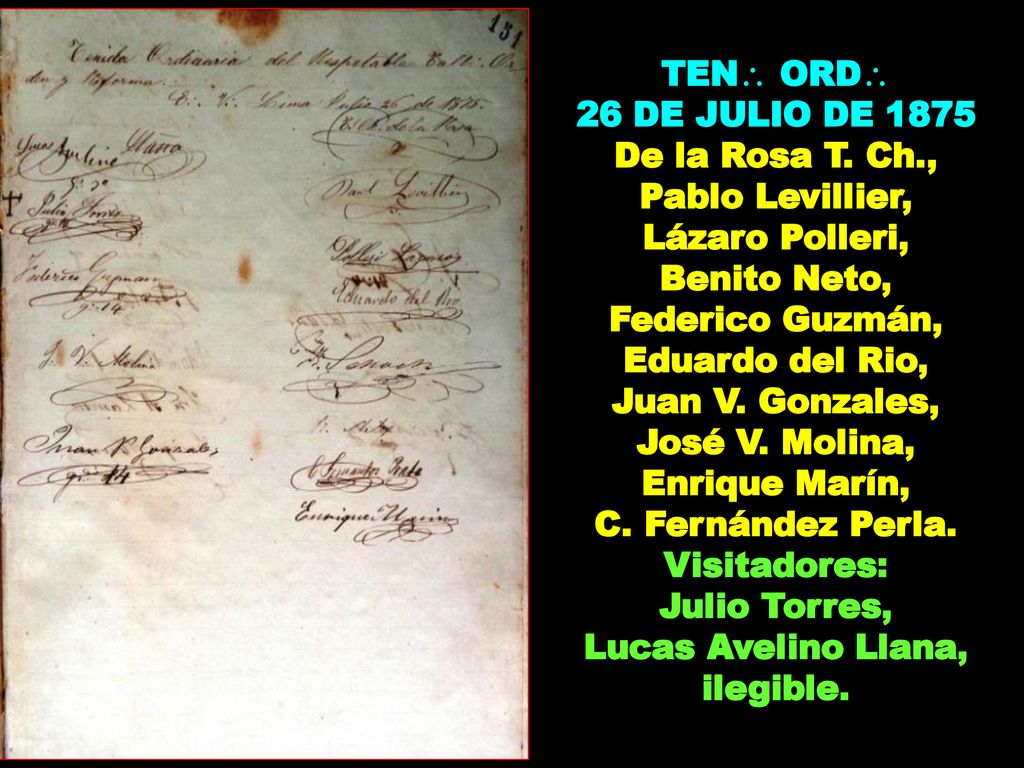 131
Tenida Ordinaria del Respetable Tall∴ Or-
den y Reforma.
E∴ V∴ Lima Julio 26 de 1875.
T. Ch. de la Rosa
Lucas Avelino Llana
gr. 3º
Julio Torres
Federico Guzman
gr. 14
J. V. Molina
Juan V. Gonzales
gr. 14
Levillier
Polleri Lazaro
Eduardo del Rio
B. Neto
C Fernandez Perla
Enrique Marin
TEN∴ ORD∴
26 DE JULIO DE 1875
De la Rosa T. Ch.,
Pablo Levillier,
Lázaro Polleri,
Benito Neto,
Federico Guzmán,
Eduardo del Rio,
Juan V. Gonzales,
José V. Molina,
Enrique Marín,
C. Fernández Perla.
Visitadores:
Julio Torres,
Lucas Avelino Llana,
ilegible.